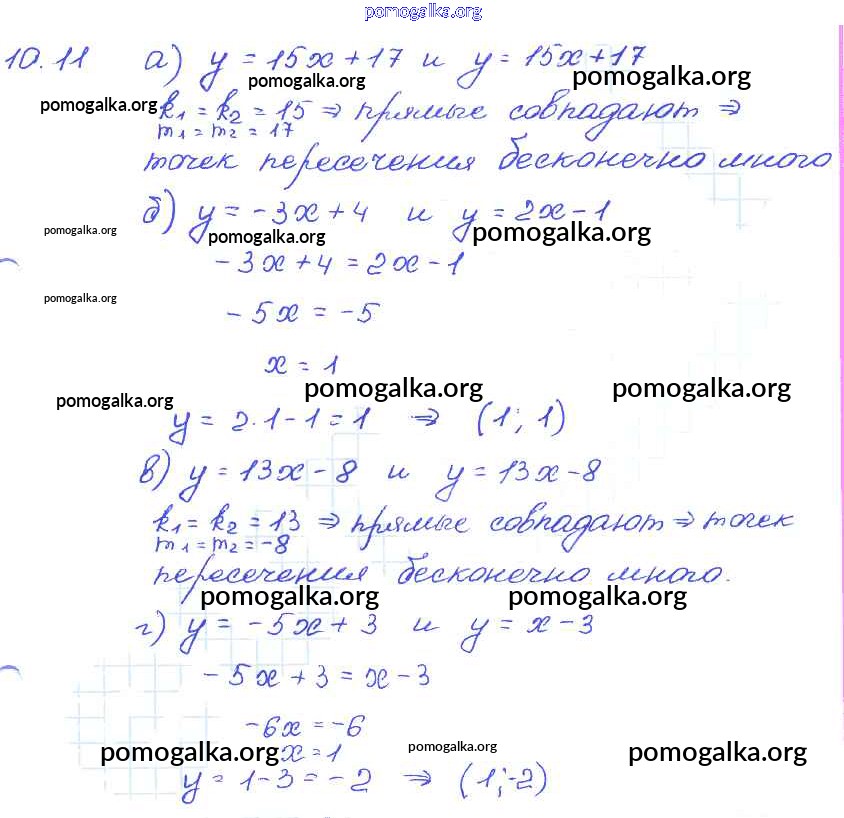 pomogalka.org
10.11 а) y = 15x + 17 и y = 15x + 17
pomogalka.org pomogalka.org
pomogalka.org k₁ = k₂ = 15 ⇒ прямые совпадают ⇒
m₁ = m₂ = 17
точек пересечения бесконечно много
б) y = -3x + 4 и y = 2x - 1
pomogalka.org pomogalka.org pomogalka.org
-3x + 4 = 2x - 1
pomogalka.org
-5x = -5
x = 1
pomogalka.org pomogalka.org pomogalka.org
y = 2·1 - 1 = 1 ⇒ (1; 1)
в) y = 13x - 8 и y = 13x - 8
k₁ = k₂ = 13 ⇒ прямые совпадают ⇒ точек
m₁ = m₂ = -8
пересечения бесконечно много.
pomogalka.org pomogalka.org
г) y = -5x + 3 и y = x - 3
-5x + 3 = x - 3
-6x = -6
pomogalka.org x = 1 pomogalka.org pomogalka.org
y = 1 - 3 = -2 ⇒ (1; -2)